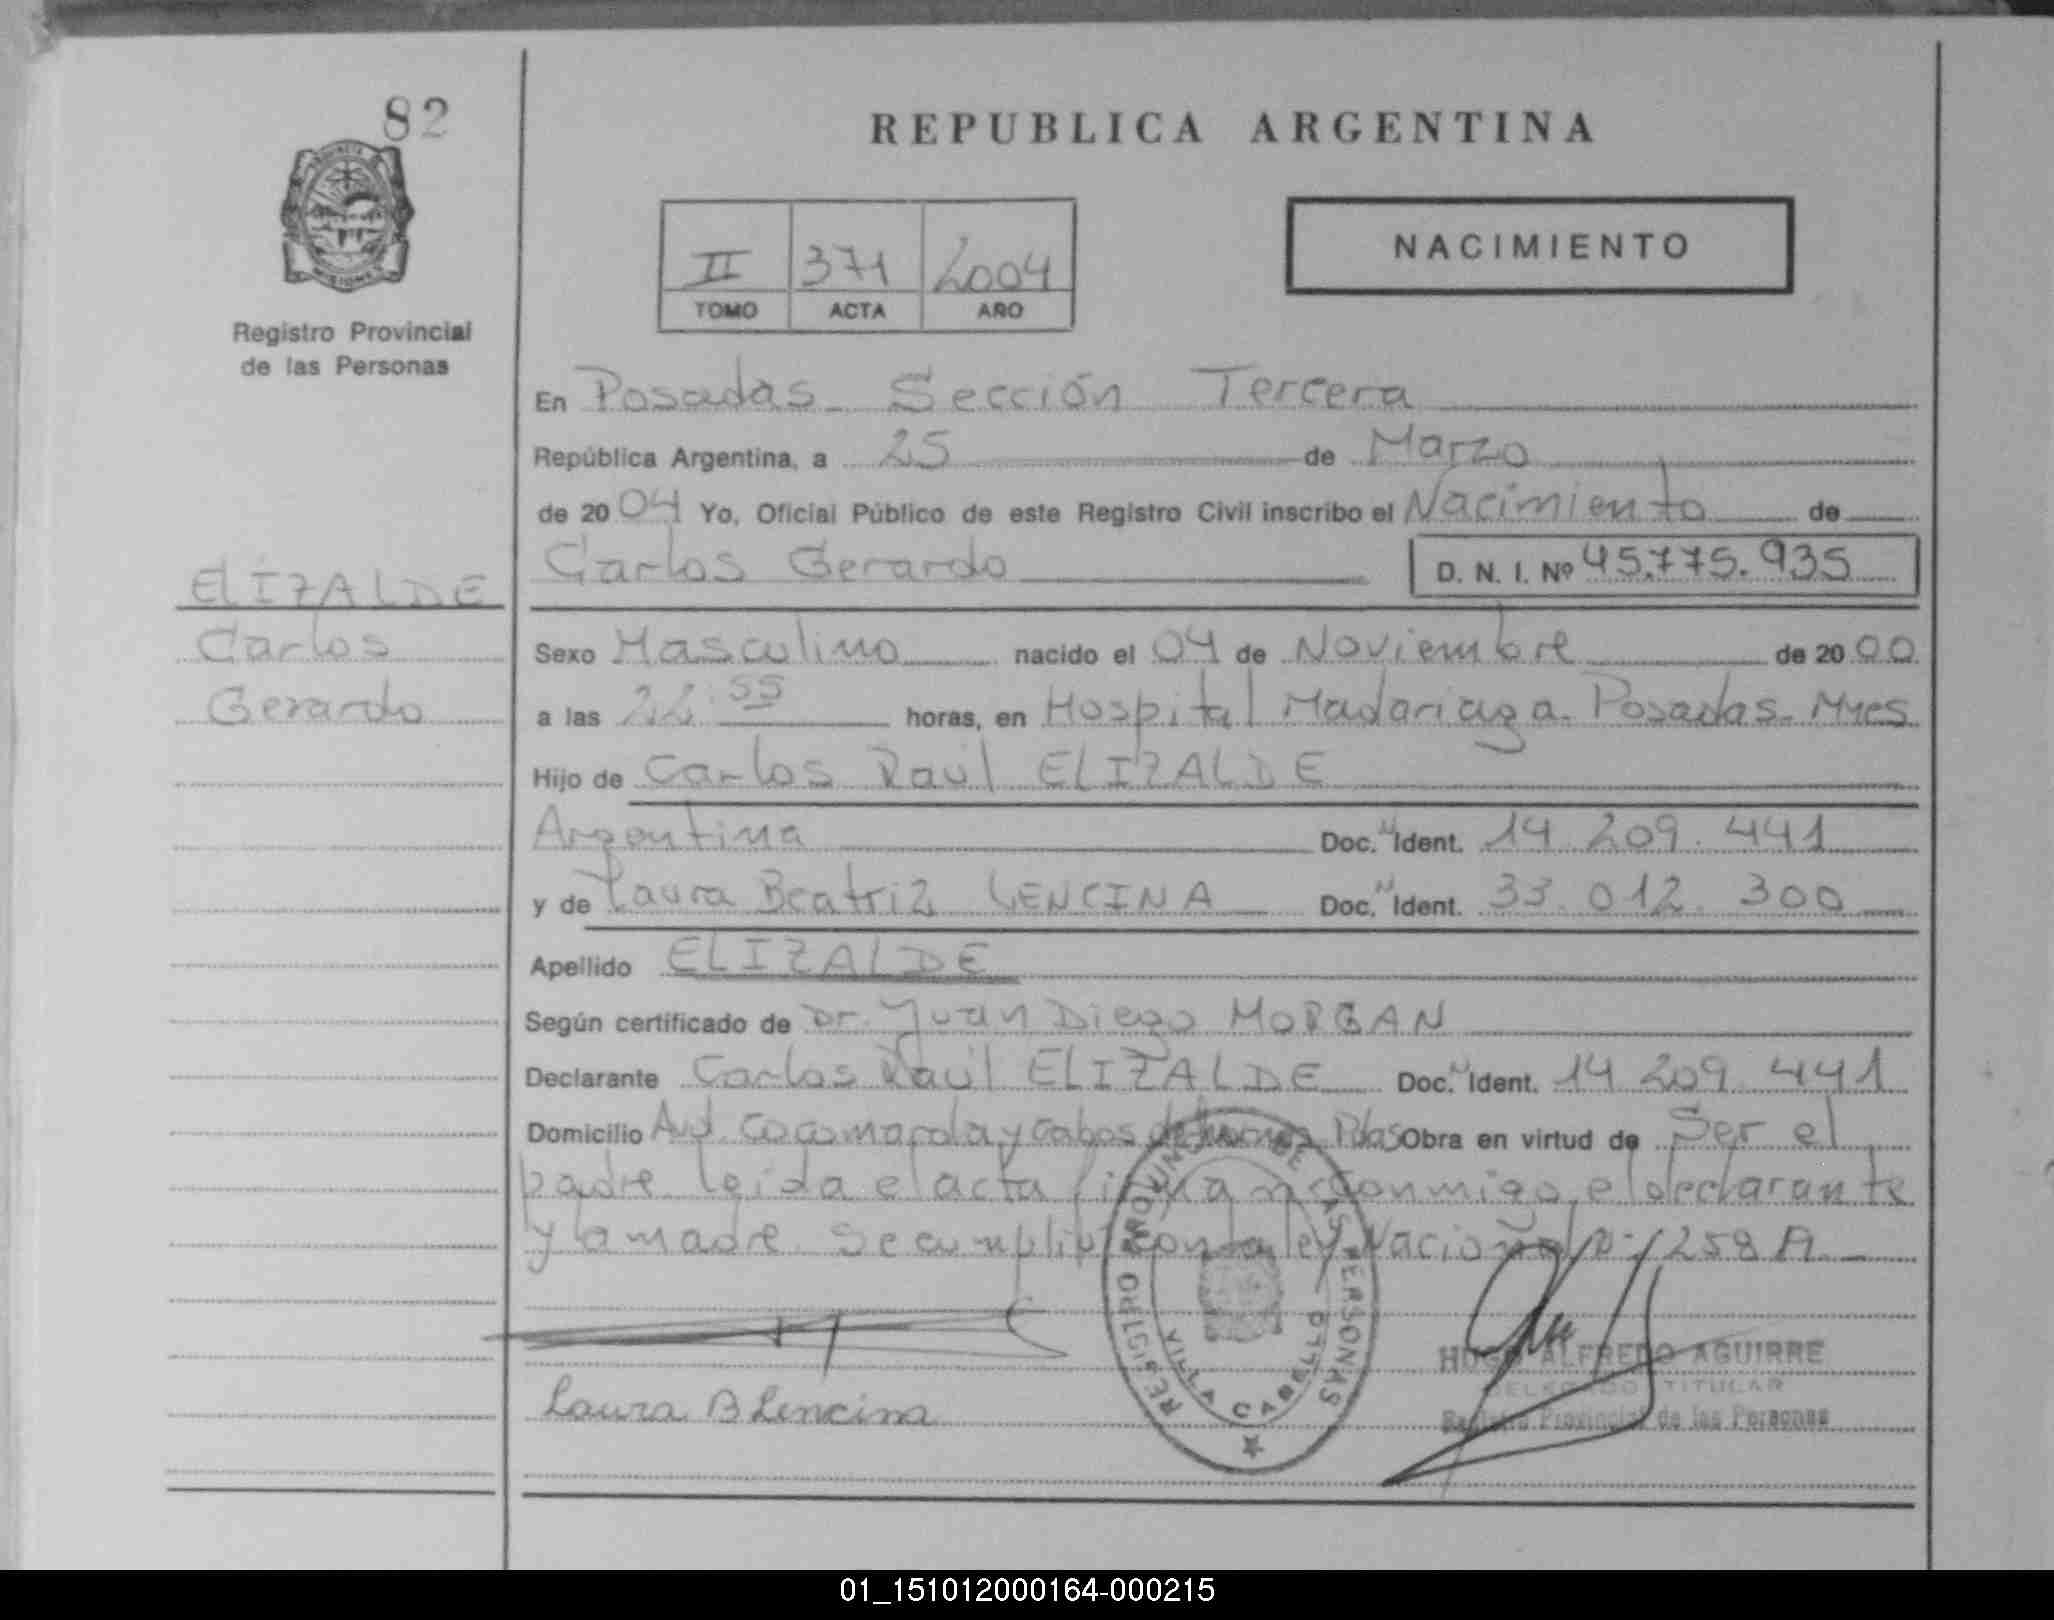 82
REPUBLICA ARGENTINA
II 371 2004
TOMO ACTA AÑO
NACIMIENTO
Registro Provincial
de las Personas
En Posadas - Sección Tercera
República Argentina, a 25 de Marzo
de 2004 Yo, Oficial Público de este Registro Civil inscribo el Nacimiento de
Carlos Gerardo D. N. I. Nº 45.775.935
ELIZALDE
Carlos
Gerardo
Sexo Masculino nacido el 04 de Noviembre de 2000
a las 22:55 horas, en Hospital Madariaga - Posadas - Mnes
Hijo de Carlos Raúl ELIZALDE
Argentina Doc. N Ident. 14.209.441
y de Laura Beatriz LENCINA Doc. N Ident. 33.012.300
Apellido ELIZALDE
Según certificado de Dr. Juan Diego MORGAN
Declarante Carlos Raúl ELIZALDE Doc. N Ident. 14.209.441
Domicilio Avd. Cocomarola y Cabos de Pdas Obra en virtud de Ser el
padre leída el acta firman conmigo el declarante
y la madre. Se cumplió con la ley Nacional
Laura B Lencina
REGISTRO PROVINCIAL DE LAS PERSONAS
VILLA CABELLO
HUGO ALFREDO AGUIRRE
DELEGADO TITULAR
Registro Provincial de las Personas
01_151012000164-000215